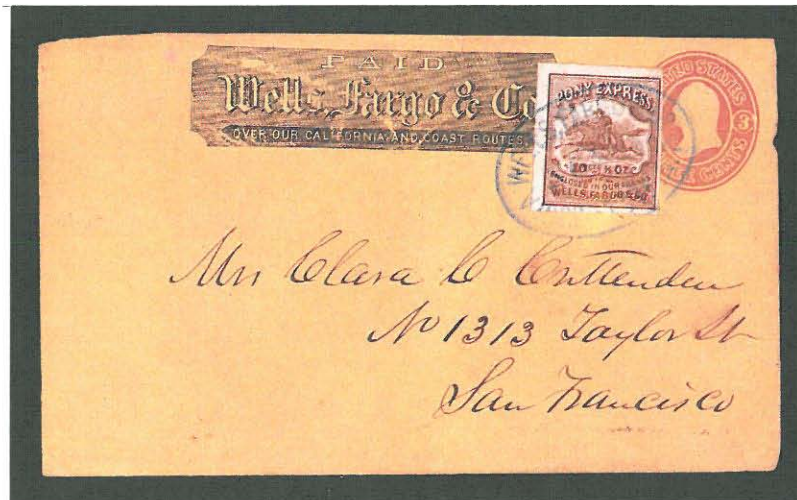 PAID
Wells, Fargo & Co
OVER OUR CALIFORNIA AND COAST ROUTES.
PONY EXPRESS
10¢ ½ OZ
ENCLOSED IN OUR FRANKS
WELLS, FARGO & CO
UNITED STATES
3
CENTS
WELLS
Mrs Clara C Crittenden
No 1313 Taylor St
San Francisco